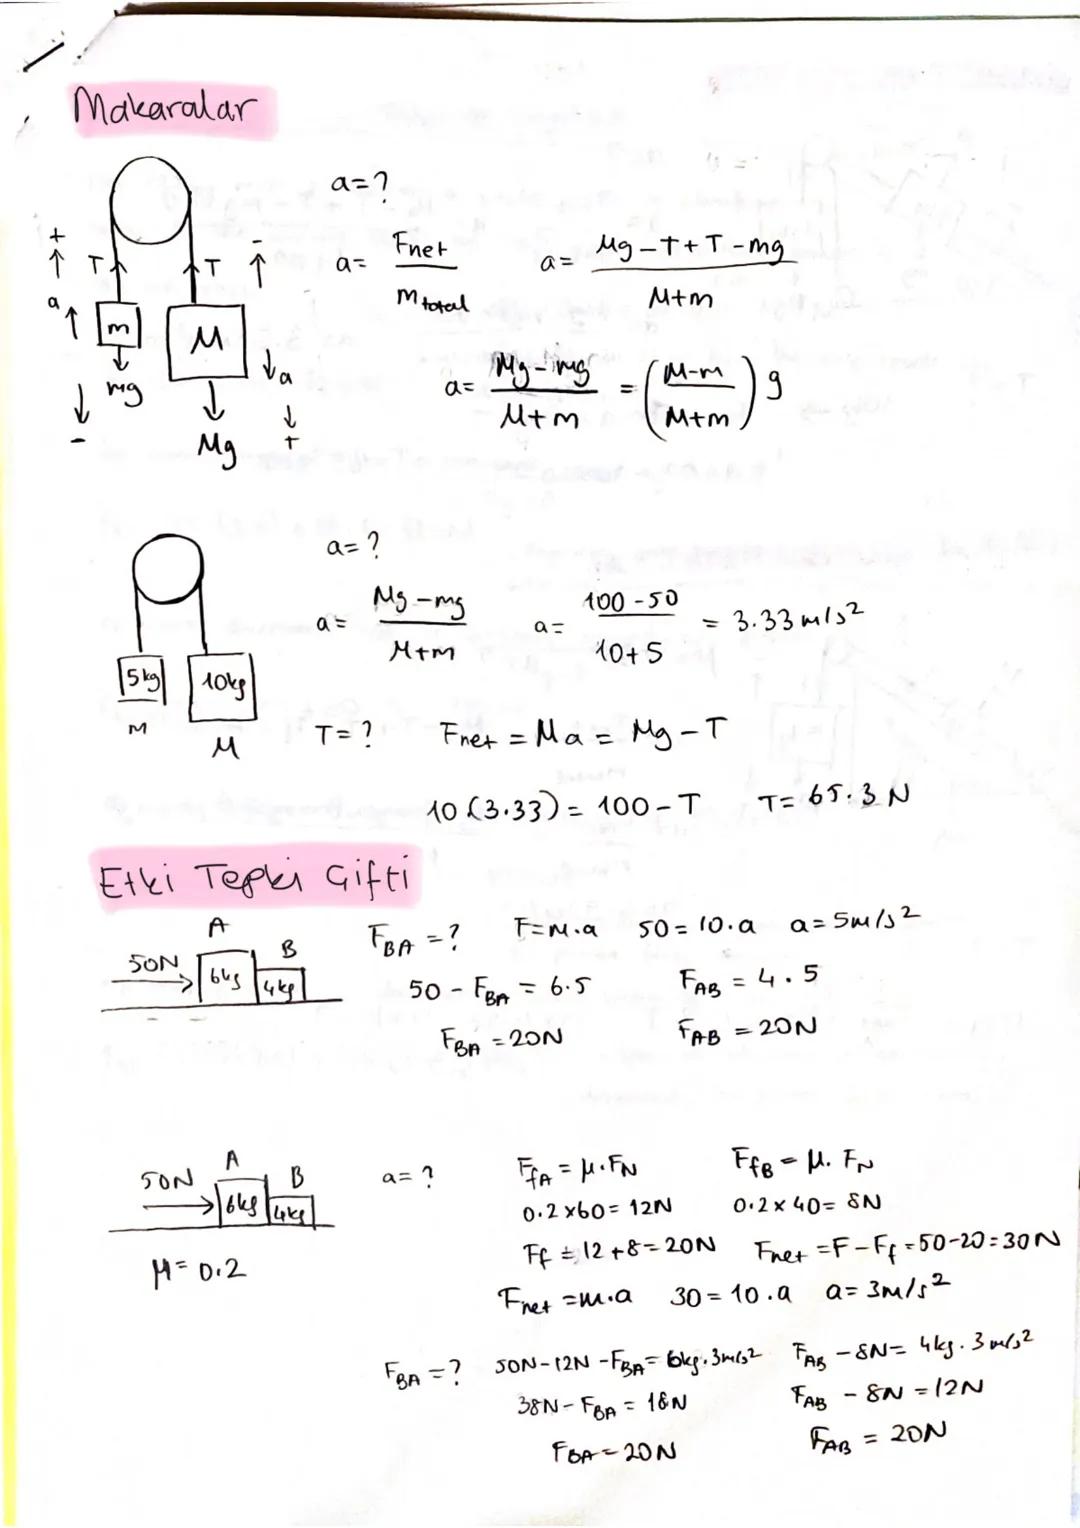 Makaralar
a=?
a= Fnet / mtotal a= Mg-T+T-mg / M+m
+ - T T a m M mg a Mg - +
a= Mg-mg / M+m = (M-m / M+m) g
a=?
a= Mg-mg / M+m a= 100-50 / 10+5 = 3.33 m/s²
5kg 10kg
m M
T=? Fnet = Ma = Mg-T
10(3.33) = 100-T T= 65.3 N
Etki Tepki Çifti
A B 50N 6kg 4kg
FBA =? F=m.a 50=10.a a=5m/s²
50 - FBA = 6.5 FAB = 4.5
FBA = 20N FAB = 20N
50N A B 6kg 4kg
μ=0.2
a=? FfA = μ.FN FfB = μ.FN
0.2x60= 12N 0.2x40= 8N
Ff = 12+8=20N Fnet =F-Ff =50-20=30N
Fnet =m.a 30=10.a a=3m/s²
FBA =? 50N-12N-FBA= 6kg.3m/s² FAB -8N= 4kg.3m/s²
38N-FBA = 18N FAB - 8N =12N
FBA=20N FAB = 20N